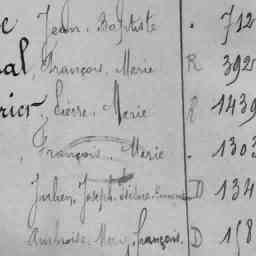 Jean. Baptiste . 712
al, François. Marie R 392
rier, Pierre. Marie R 1439
, François. Marie . 1303
Julien, Joseph. D 134
Ambroise. Marie. François. D